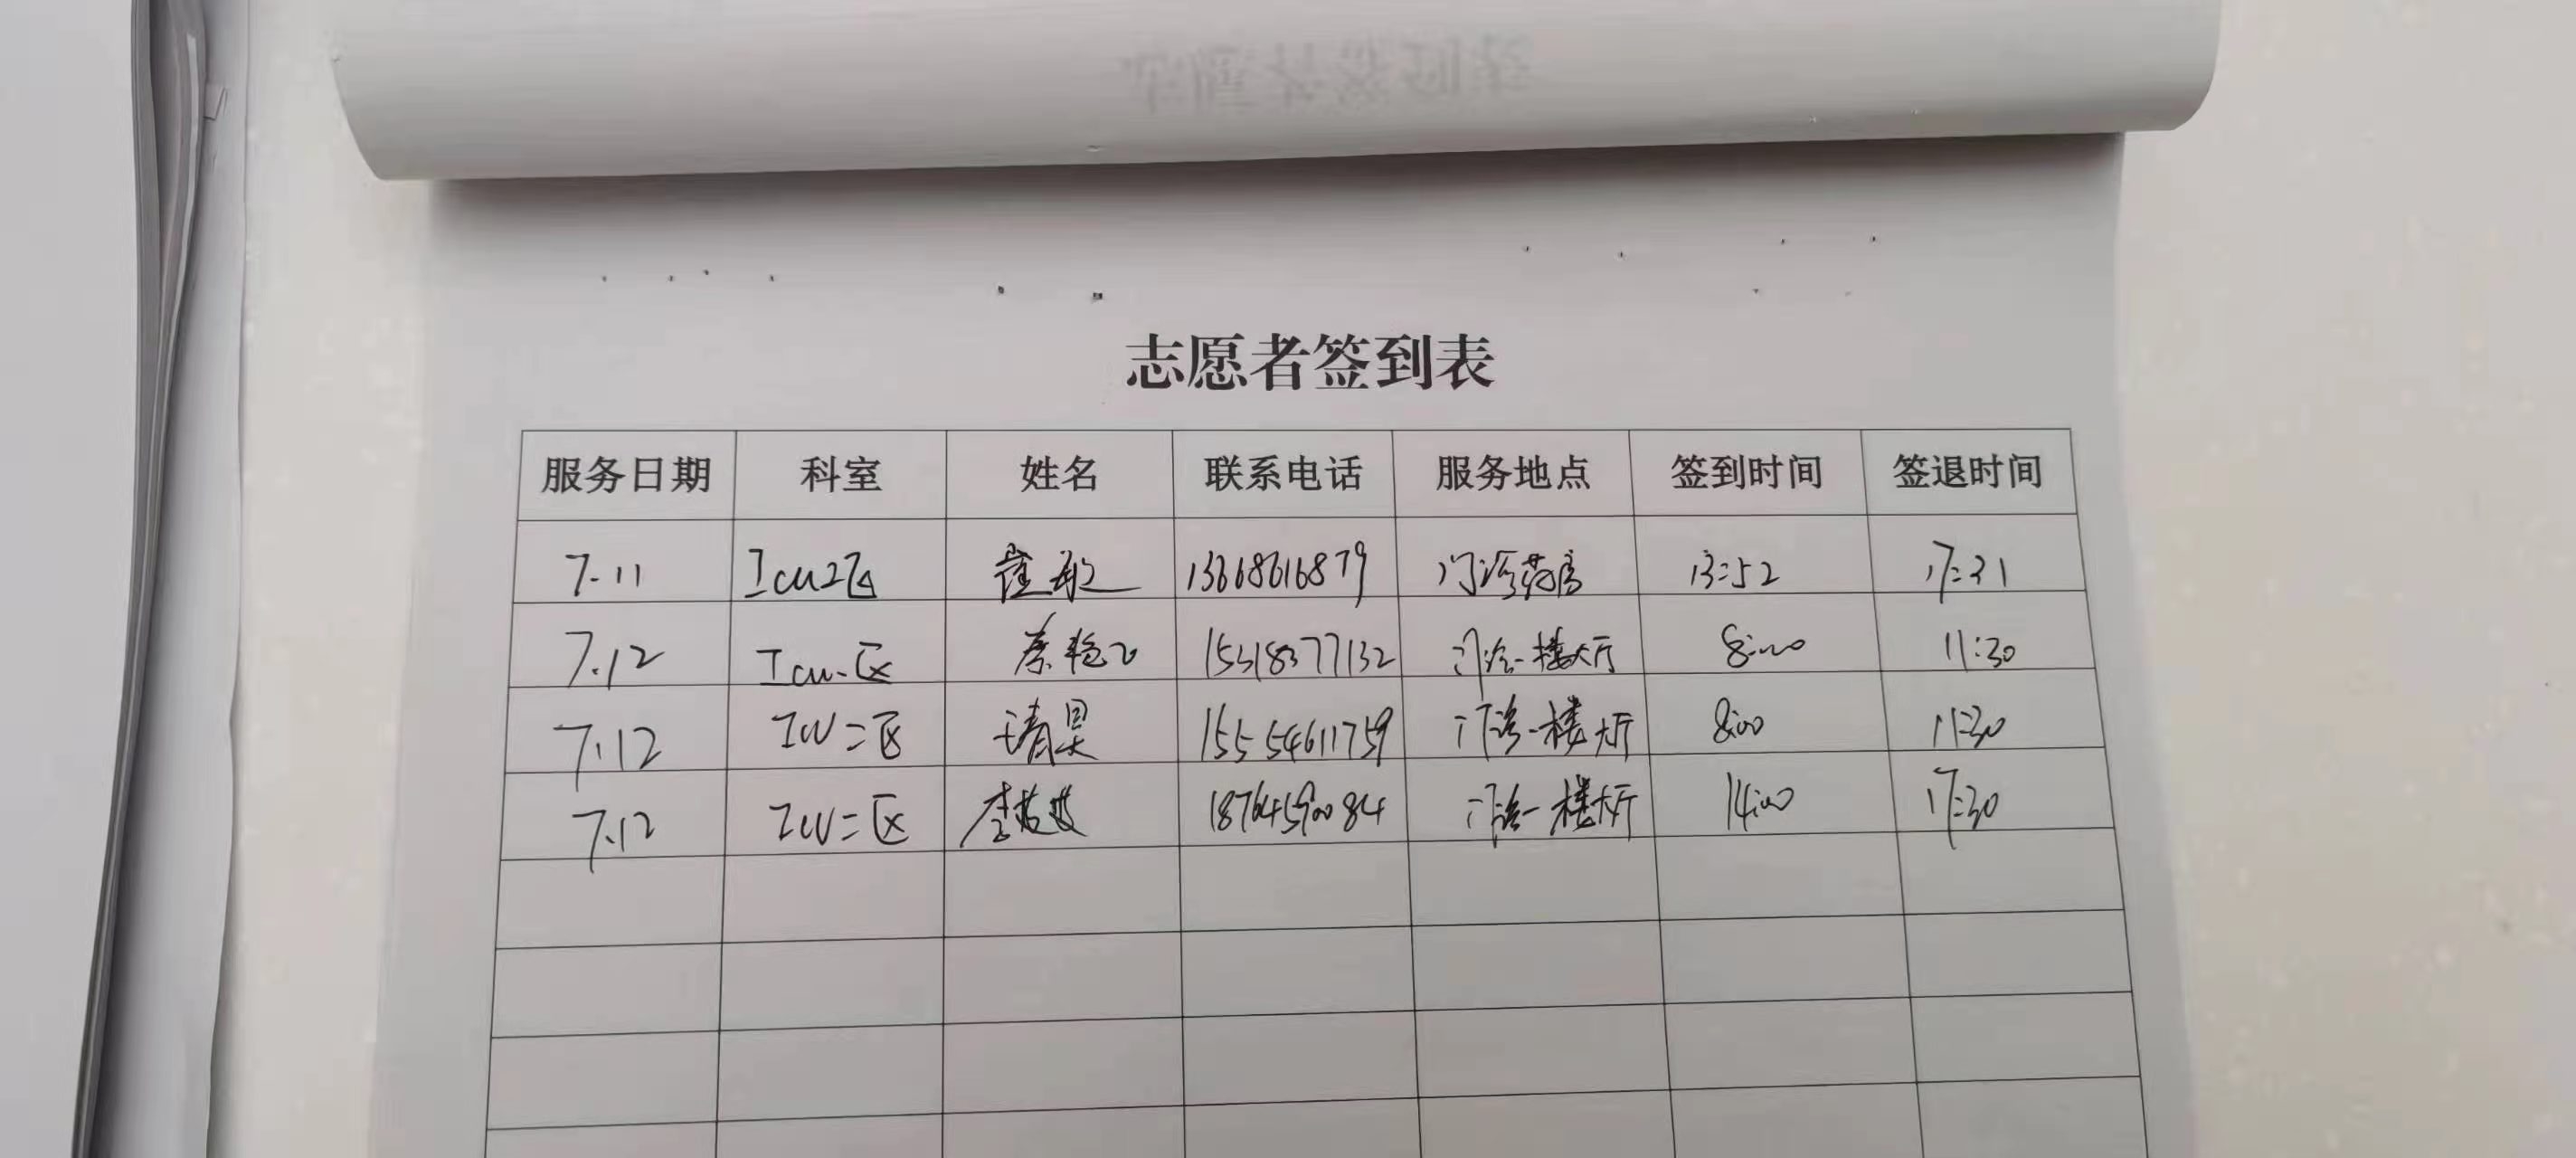 志愿者签到表
服务日期 科室 姓名 联系电话 服务地点 签到时间 签退时间
7.11 Icu2区 崔敏 13668616879 门诊药房 13:52 17:31
7.12 Icu二区 15318377132 门诊一楼大厅 8:00 11:30
7.12 ICU二区 15554611759 门诊一楼大厅 8:00 11:30
7.12 ICU二区 李 18764590084 门诊一楼大厅 14:00 17:30